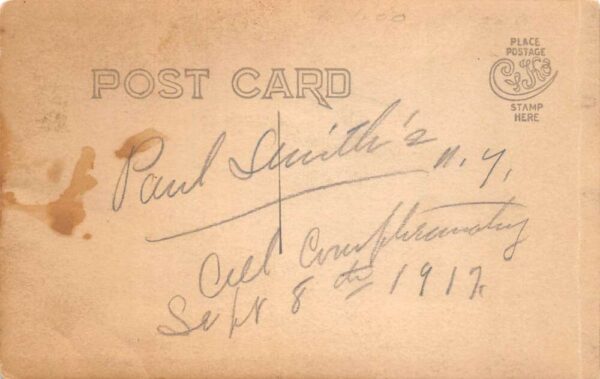 POST CARD
PLACE
POSTAGE
CYKO
STAMP
HERE
Paul Smith's
N. Y.
Complimentary
Sept 8th 1912